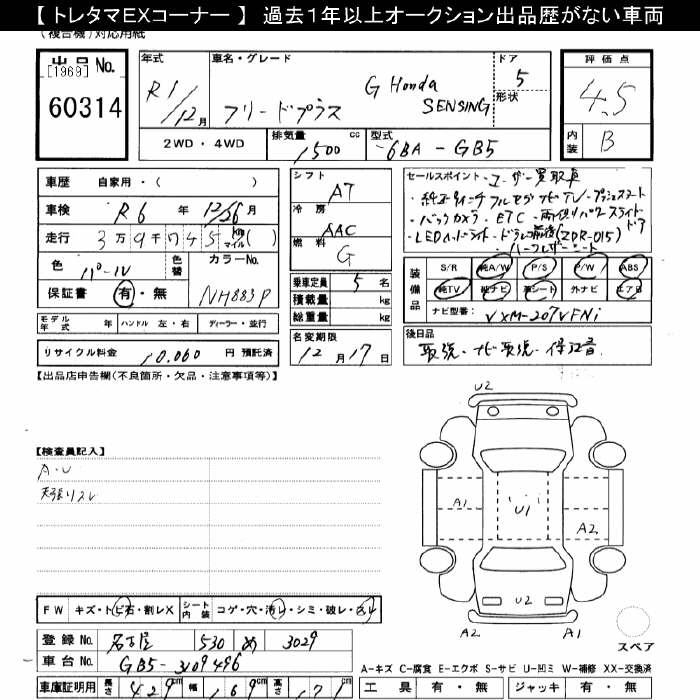 【 トレタマEXコーナー 】 過去1年以上オークション出品歴がない車両
(複合機)対応用紙
出品 No.
[1969]
60314
年式
R1/12月
車名・グレード
フリードプラス
G Honda SENSING
ドア
5
形状
評価点
4.5
内装
B
2WD ・ 4WD
排気量
1500 cc
型式
6BA - GB5
車歴
自家用・( )
車検
R6 年 12/26 月
走行
3万9千745 km マイル( )
色
パール
色替
カラーNo.
NH883P
保証書
有・無
シフト
AT
冷房
AAC
燃料
G
乗車定員
5 名
積載量
kg
総重量
kg
セールスポイント・ユーザー買取車
・純正9インチフルセグナビTV・プッシュスタート
・バックカメラ・ETC・両側パワースライドドア
・LEDヘッドライト・ドラレコ前後(ZDR-015)
ハーフレザーシート
装備品
S/R 純A/W P/S P/W ABS
純TV 純ナビ 革シート 外ナビ エアB
ナビ型番:
VXM-207VFNi
モデル年式 年
ハンドル 左・右
ディーラー・並行
リサイクル料金
10,060 円 預託済
名変期限
12月17日
後日品
取説・ナビ取説・保証書
【出品店申告欄(不良箇所・欠品・注意事項等)】
【検査員記入】
A・U
天張りスレ
U2
A1
U1
A2
U2
A2
A1
スペア
FW キズ・トビ石・割レX
シート内装 コゲ・穴・汚レ・シミ・破レ・スレ
登録 No.
名古屋 530 め 3029
車台 No.
GB5-3109496
車庫証明用
長さ 429cm
幅 169cm
高さ 171cm
A-キズ C-腐食 E-エクボ S-サビ U-凹ミ W-補修 XX-交換済
工具 有・無
ジャッキ 有・無